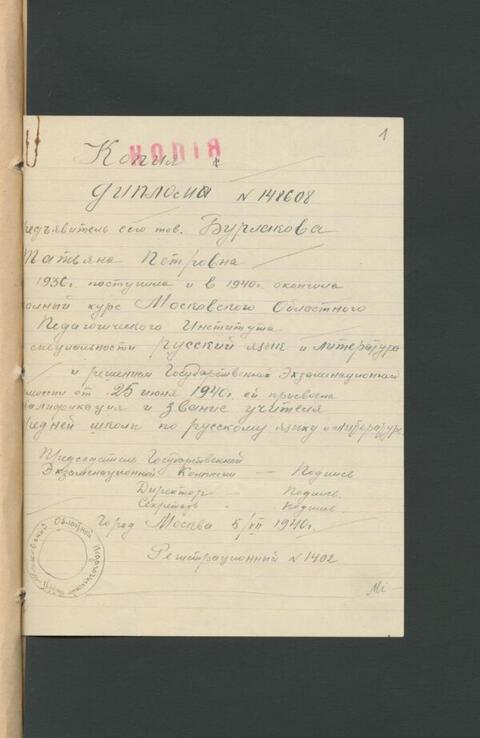 1
Копия
КОПІЯ
диплома N 148608
редъявитель сего тов. Бурлакова
Татьяна Петровна
1936г. поступила и в 1940г. окончила
олный курс Московского Областного
Педагогического Института
специальности русский язык и литература
и решением Государственной Экзаменационной
миссии от 25 июня 1940г. ей присвоена
валификация и звание учителя
редней школы по русскому языку и литературе.
Председатель Государственной
Экзаменационной Комиссии — Подпись
Директор — Подпись.
Секретарь - Подпись.
Город Москва 5/VII 1940г.
Регистрационный N 1402